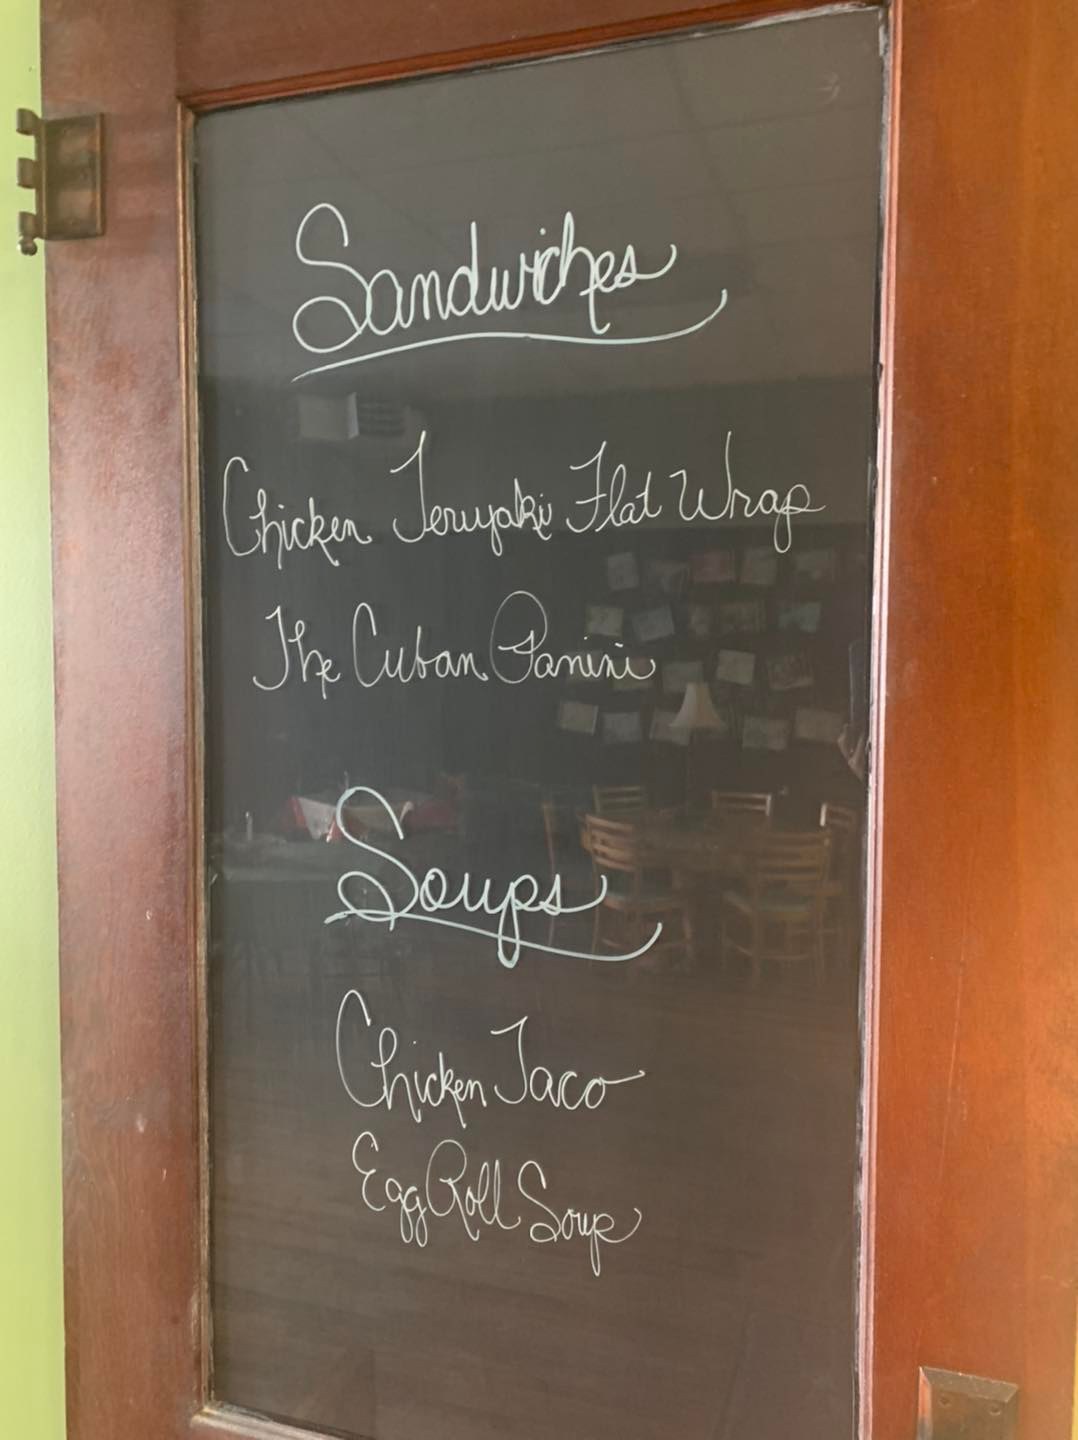 Sandwiches
Chicken Teriyaki Flat Wrap
The Cuban Panini
Soups
Chicken Taco
Egg Roll Soup